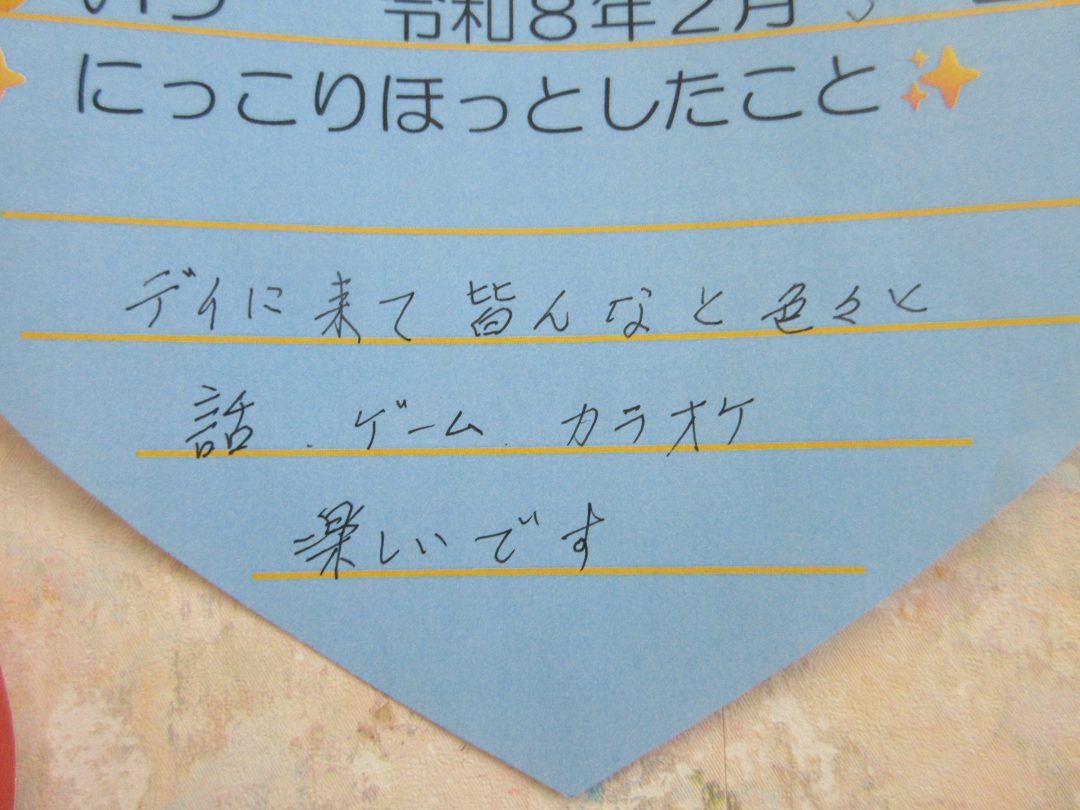 いつ 令和8年2月
にっこりほっとしたこと
デイに来て皆んなと色々と
話.ゲーム.カラオケ
楽しいです